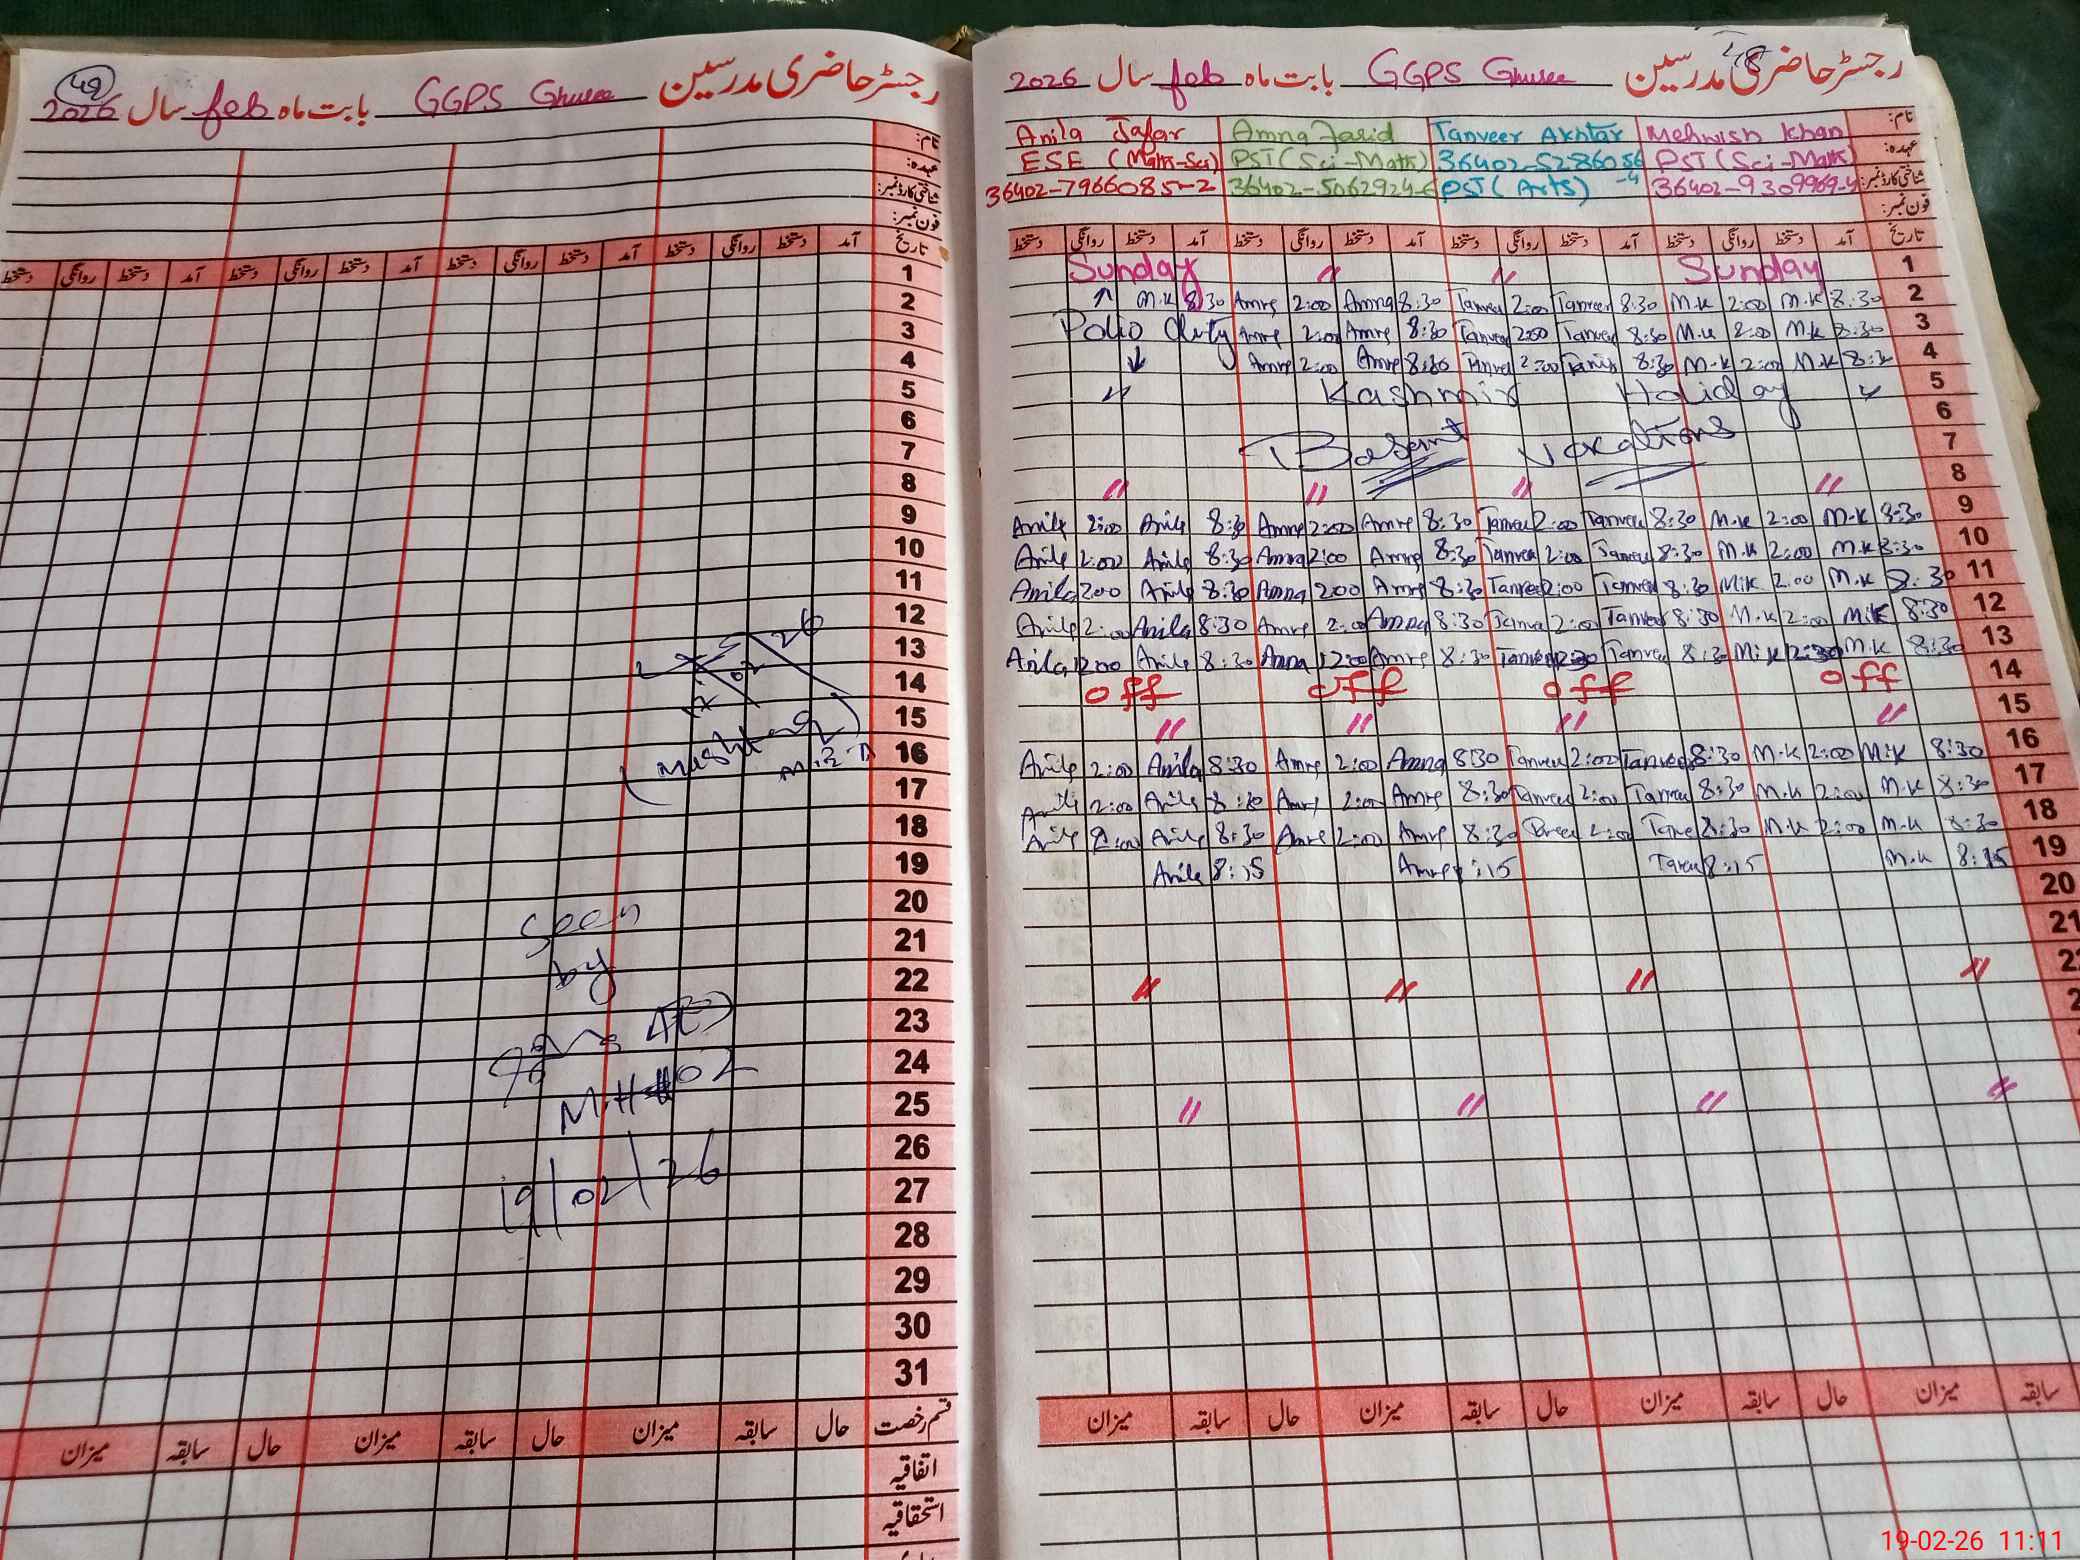 49
رجسٹر حاضری مدرسین GGPS Ghusee بابت ماہ feb سال 2026
نام:
عہدہ:
شناختی کارڈ نمبر:
فون نمبر:
تاریخ آمد دستخط روانگی دستخط آمد دستخط روانگی دستخط آمد دستخط روانگی دستخط آمد دستخط روانگی دستخط
1
2
3
4
5
6
7
8
9
10
11
12
13
14
15
16
17
18
19
20
21
22
23
24
25
26
27
28
29
30
31
02 26
Seen
by
M.H#02
19/02/26
قسم رخصت حال سابقہ میزان حال سابقہ میزان حال سابقہ میزان
اتفاقیہ
استحقاقیہ
48
رجسٹر حاضری مدرسین GGPS Ghusee بابت ماہ feb سال 2026
نام: Anila Jafar Amna Farid Tanveer Akhtar Mehwish Khan
عہدہ: ESE (Math-Sci) PST (Sci-Math) 36402-5286056 PST (Sci-Math)
شناختی کارڈ نمبر: 36402-7966085-2 36402-5062924-6 PST (Arts) -4 36402-9309969-4
فون نمبر:
تاریخ آمد دستخط روانگی دستخط آمد دستخط روانگی دستخط آمد دستخط روانگی دستخط آمد دستخط روانگی دستخط
Sunday 〃 〃 Sunday 1
M.K 8:30 Amna 2:00 Amna 8:30 Tanveer 2:00 Tanveer 8:30 M.K 2:00 M.K 8:30 2
Polio duty Amna 2:00 Amna 8:30 Tanveer 2:00 Tanveer 8:30 M.K 2:00 M.K 8:30 3
Amna 2:00 Amna 8:30 Tanveer 2:00 Tanveer 8:30 M.K 2:00 M.K 8:30 4
〃 Kashmir Holiday 〃 5
6
Basant Vacations 7
〃 〃 〃 〃 8
Anila 2:00 Anila 8:30 Amna 2:00 Amna 8:30 Tanveer 2:00 Tanveer 8:30 M.K 2:00 M.K 8:30 9
Anila 2:00 Anila 8:30 Amna 2:00 Amna 8:30 Tanveer 2:00 Tanveer 8:30 M.K 2:00 M.K 8:30 10
Anila 2:00 Anila 8:30 Amna 2:00 Amna 8:30 Tanveer 2:00 Tanveer 8:30 M.K 2:00 M.K 8:30 11
Anila 2:00 Anila 8:30 Amna 2:00 Amna 8:30 Tanveer 2:00 Tanveer 8:30 M.K 2:00 M.K 8:30 12
Anila 12:00 Anila 8:30 Amna 12:00 Amna 8:30 Tanveer Tanveer 8:30 M.K M.K 8:30 13
off off off off 14
〃 〃 〃 〃 15
Anila 2:00 Anila 8:30 Amna 2:00 Amna 8:30 Tanveer 2:00 Tanveer 8:30 M.K 2:00 M.K 8:30 16
Anila 2:00 Anila 8:30 Amna 2:00 Amna 8:30 Tanveer 2:00 Tanveer 8:30 M.K 2:00 M.K 8:30 17
Anila 2:00 Anila 8:30 Amna 2:00 Amna 8:30 Tanveer 2:00 Tanveer 8:30 M.K 2:00 M.K 8:30 18
Anila 8:15 Amna 8:15 Tanveer 8:15 M.K 8:15 19
20
21
〃 〃 〃 〃 22
〃 〃 〃 〃
سابقہ میزان حال سابقہ میزان حال سابقہ میزان حال سابقہ میزان
19-02-26 11:11